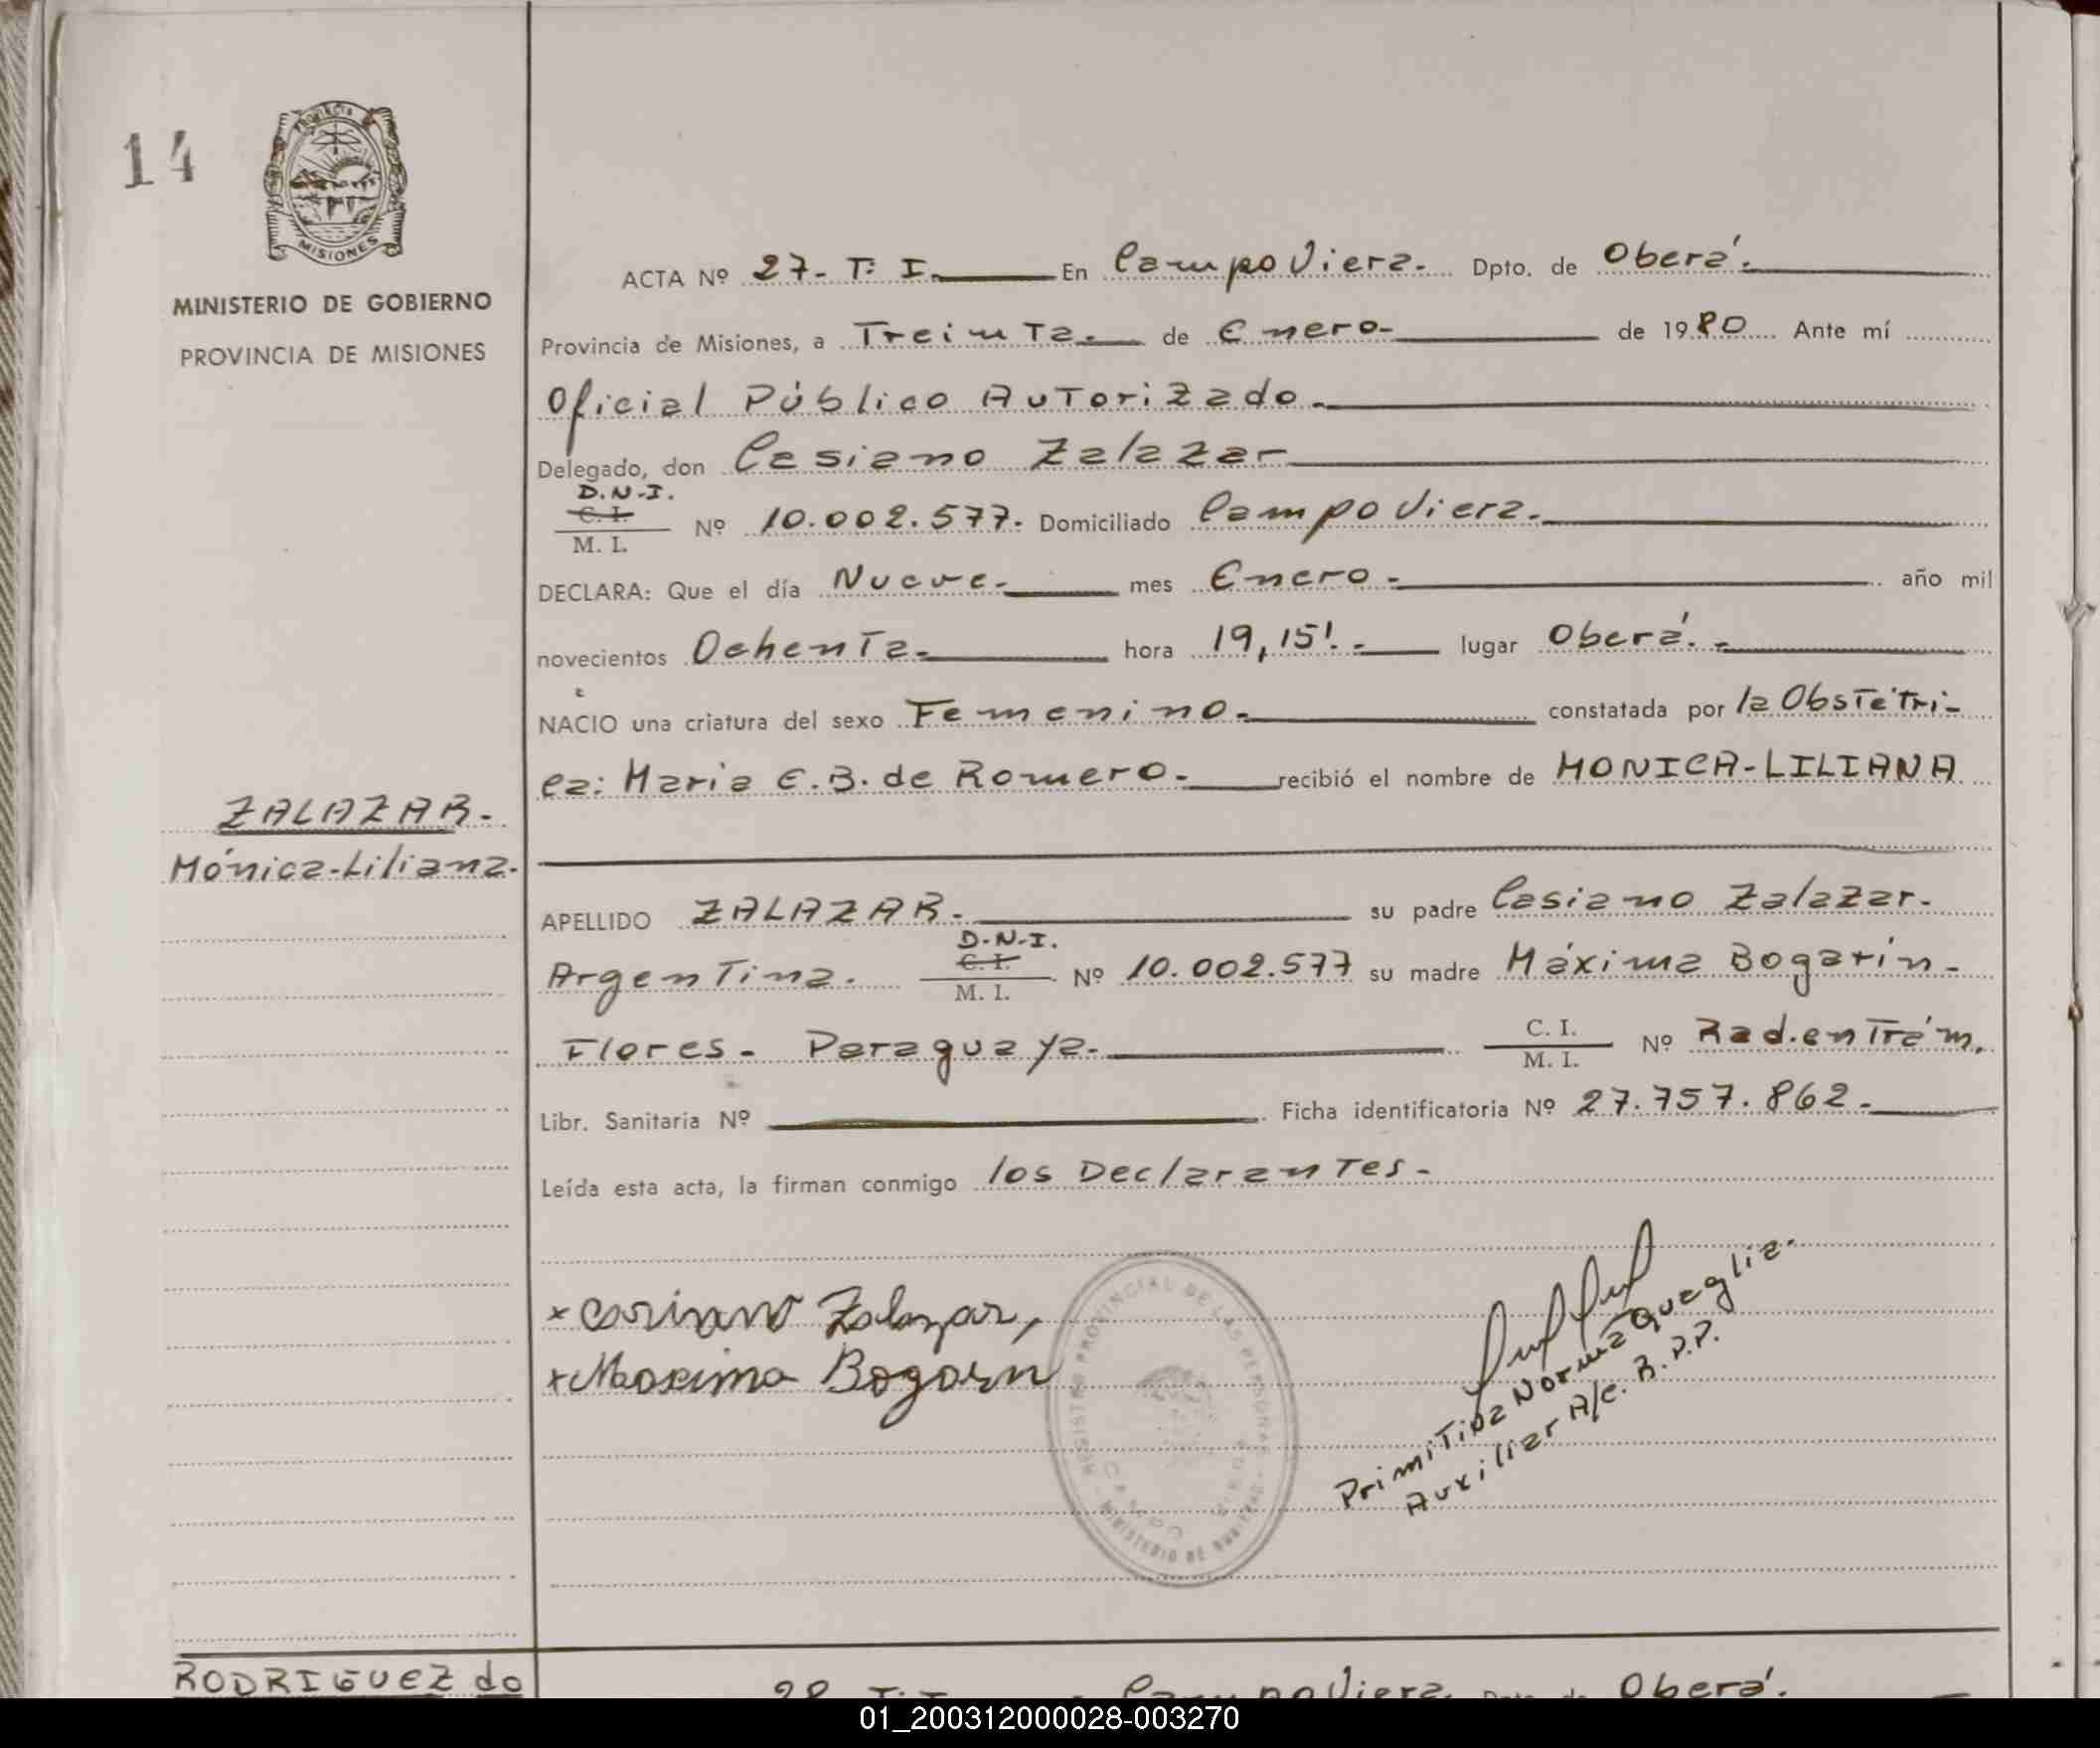 14
PROVINCIA
MISIONES
MINISTERIO DE GOBIERNO
PROVINCIA DE MISIONES
ACTA Nº 27- T: I. En Campo Viera. Dpto. de Oberá.
Provincia de Misiones, a Treinta. de Enero- de 1980 Ante mí
Oficial Público Autorizado.
Delegado, don Casiano Zalazar
D.N.I.
C. I.
M. I.
Nº 10.002.577. Domiciliado Campo Viera.
DECLARA: Que el día Nueve. mes Enero. año mil
novecientos Ochenta. hora 19,15'.- lugar Oberá.-
NACIO una criatura del sexo Femenino. constatada por la Obstétri-
ca: Maria E.B. de Romero. recibió el nombre de MONICA-LILIANA
ZALAZAR.
Mónica-Liliana.
APELLIDO ZALAZAR. su padre Casiano Zalazar.
D.N.I.
C. I.
M. I.
Argentina. Nº 10.002.577 su madre Máxima Bogarín-
Flores- Paraguaya. C. I.
M. I.
Nº Rad.en Trám.
Libr. Sanitaria Nº Ficha identificatoria Nº 27.757.862.
Leída esta acta, la firman conmigo los Declarantes-
x Casiano Zalazar,
x Maxima Bogarn
REGISTRO PROVINCIAL DE LAS PERSONAS
CAMPO
MINISTERIO DE GOBIERNO
Primitiva Norma Quaglia.
Auxiliar A/C. R.P.P.
RODRIGUEZ do
28 T:I Campo Viera. Dpto. de Oberá.
01_200312000028-003270